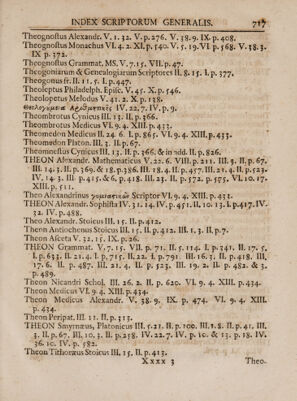 INDEX SCRIPTORUM GENERALIS. 717
Theognostus Alexandr. V. 1. 32. V. p. 276. V. 38. 9. IX. p. 408.
Theognostus Monachus VI. 4. 2. XI. p. 140. V. 5. 19. VI. p. 568. V. 38. 3.
IX p. 372.
Theognostus Grammat. MS. V. 7. 15. VII. p. 47.
Theogoniarum & Genealogiarum Scriptores II. 8. 15. I. p. 377.
Theogonus ff. II. 11. 5. I. p. 447.
Theoleptus Philadelph. Episc. V. 45. X. p. 546.
Theoloptus Melodus V. 41. 2. X. p. 138.
Θεολογούμενα Ἀριθμητικῆς IV. 22. 7. IV. p. 9.
Theombrotus Cynicus III. 13. II. p. 366.
Theombrotus Medicus VI. 9. 4. XIII. p. 433.
Theomedon Medicus II. 24. 6. I. p. 865. VI. 9. 4. XIII. p. 433.
Theomedon Platon. III. 3. II. p. 67.
Theomnestus Cynicus III. 13. II. p. 366. & in add. II. p. 826.
THEON Alexandr. Mathematicus V. 22. 6. VIII. p. 211. III. 3. II. p. 67.
III. 14. 3. II. p. 369. & 18. p. 386. III. 18. 4. II. p. 457. III. 21. 4. II. p. 523.
IV. 14. 3. III. p. 415. & 6. p. 418. III. 23. II. p. 572. p. 575. VI. 10. 17.
XIII. p. 511.
Theo Alexandrinus Scriptor VI. 9. 4. XIII. p. 431.
THEON Alexandr. Sophista IV. 32. 14. IV. p. 451. II. 10. 13. I. p. 417. IV.
32. IV. p. 488.
Theo Alexandr. Stoicus III. 15. II. p. 412.
Theon Antiochenus Stoicus III. 15. II. p. 412. III. 1. 3. II. p. 7.
Theon Asceta V. 32. 15. IX. p. 26.
THEON Grammat. V. 7. 15. VII. p. 71. II. 5. 114. I. p. 341. II. 17. 5.
I. p. 632. II. 21. 4. I. p. 715. II. 22. I. p. 791. III. 16. 3. II. p. 418. III.
17. 6. II. p. 487. III. 21. 4. II. p. 523. III. 19. 2. II. p. 482. & 3.
p. 489.
Theon Nicandri Schol. III. 26. 2. II. p. 620. VI. 9. 4. XIII. p. 434.
Theon Medicus VI. 9. 4. XIII. p. 434.
Theon Medicus Alexandr. V. 38. 9. IX. p. 474. VI. 9. 4. XIII.
p. 434.
Theon Peripat. III. 11. II. p. 313.
THEON Smyrnæus, Platonicus III. 5. 21. II. p. 100. III. 1. 8. II. p. 41. III.
3. II. p. 67. III. 10. 3. II. p. 258. IV. 22. 7. IV. p. 10. & 13. p. 18. IV.
36. 10. IV. p. 582.
Theon Tithoræus Stoicus III. 15. II. p. 413.
Xxxx 3 Theo.